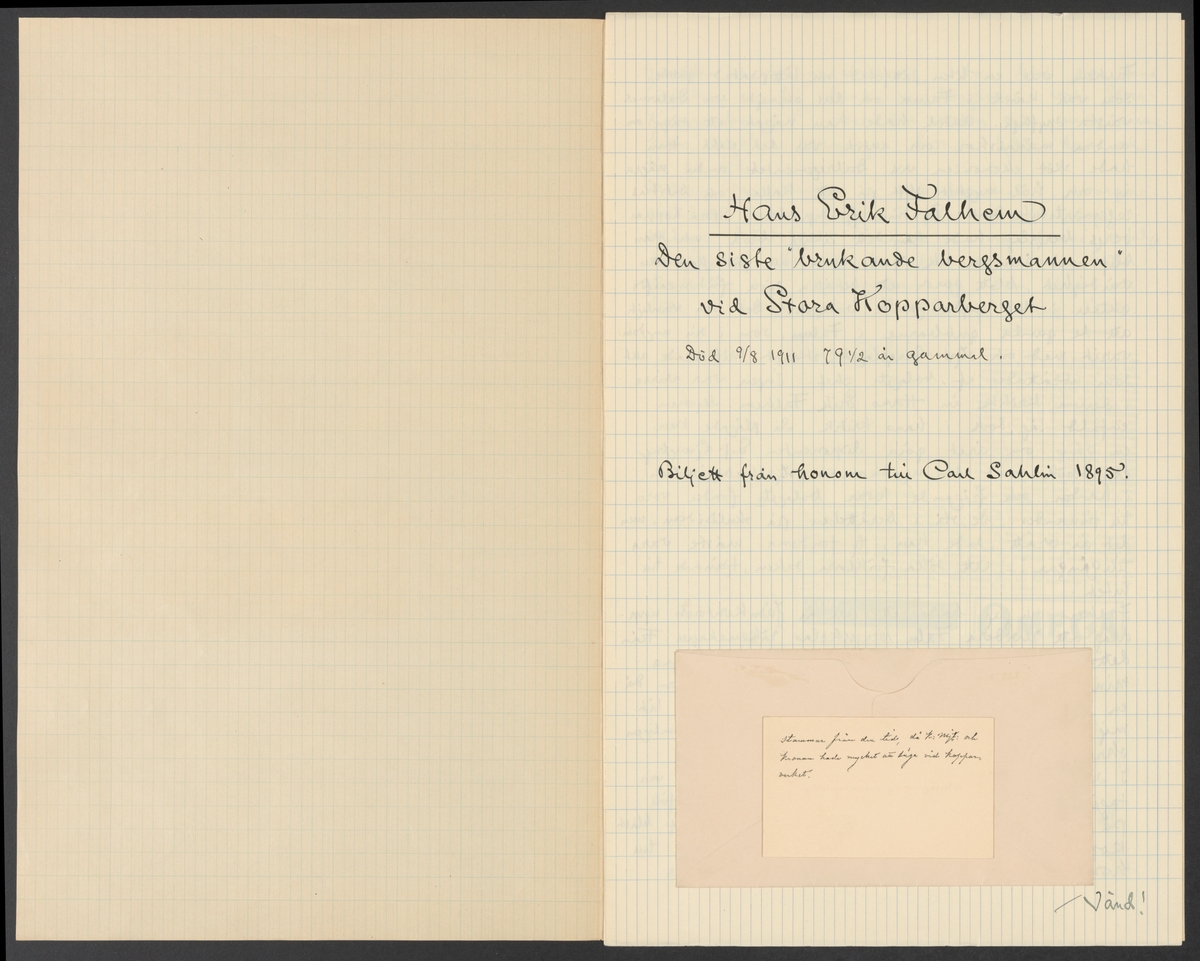 Hans Erik Falhem
Den siste "brukande bergsmannen"
vid Stora Kopparberget
Död 9/8 1911 79 1/2 år gammal.
Biljett från honom till Carl Sahlin 1895.
stammar från den tid, då K: Mjt: och
Kronan hade mycket att säga vid koppar
verket.
Vänd!